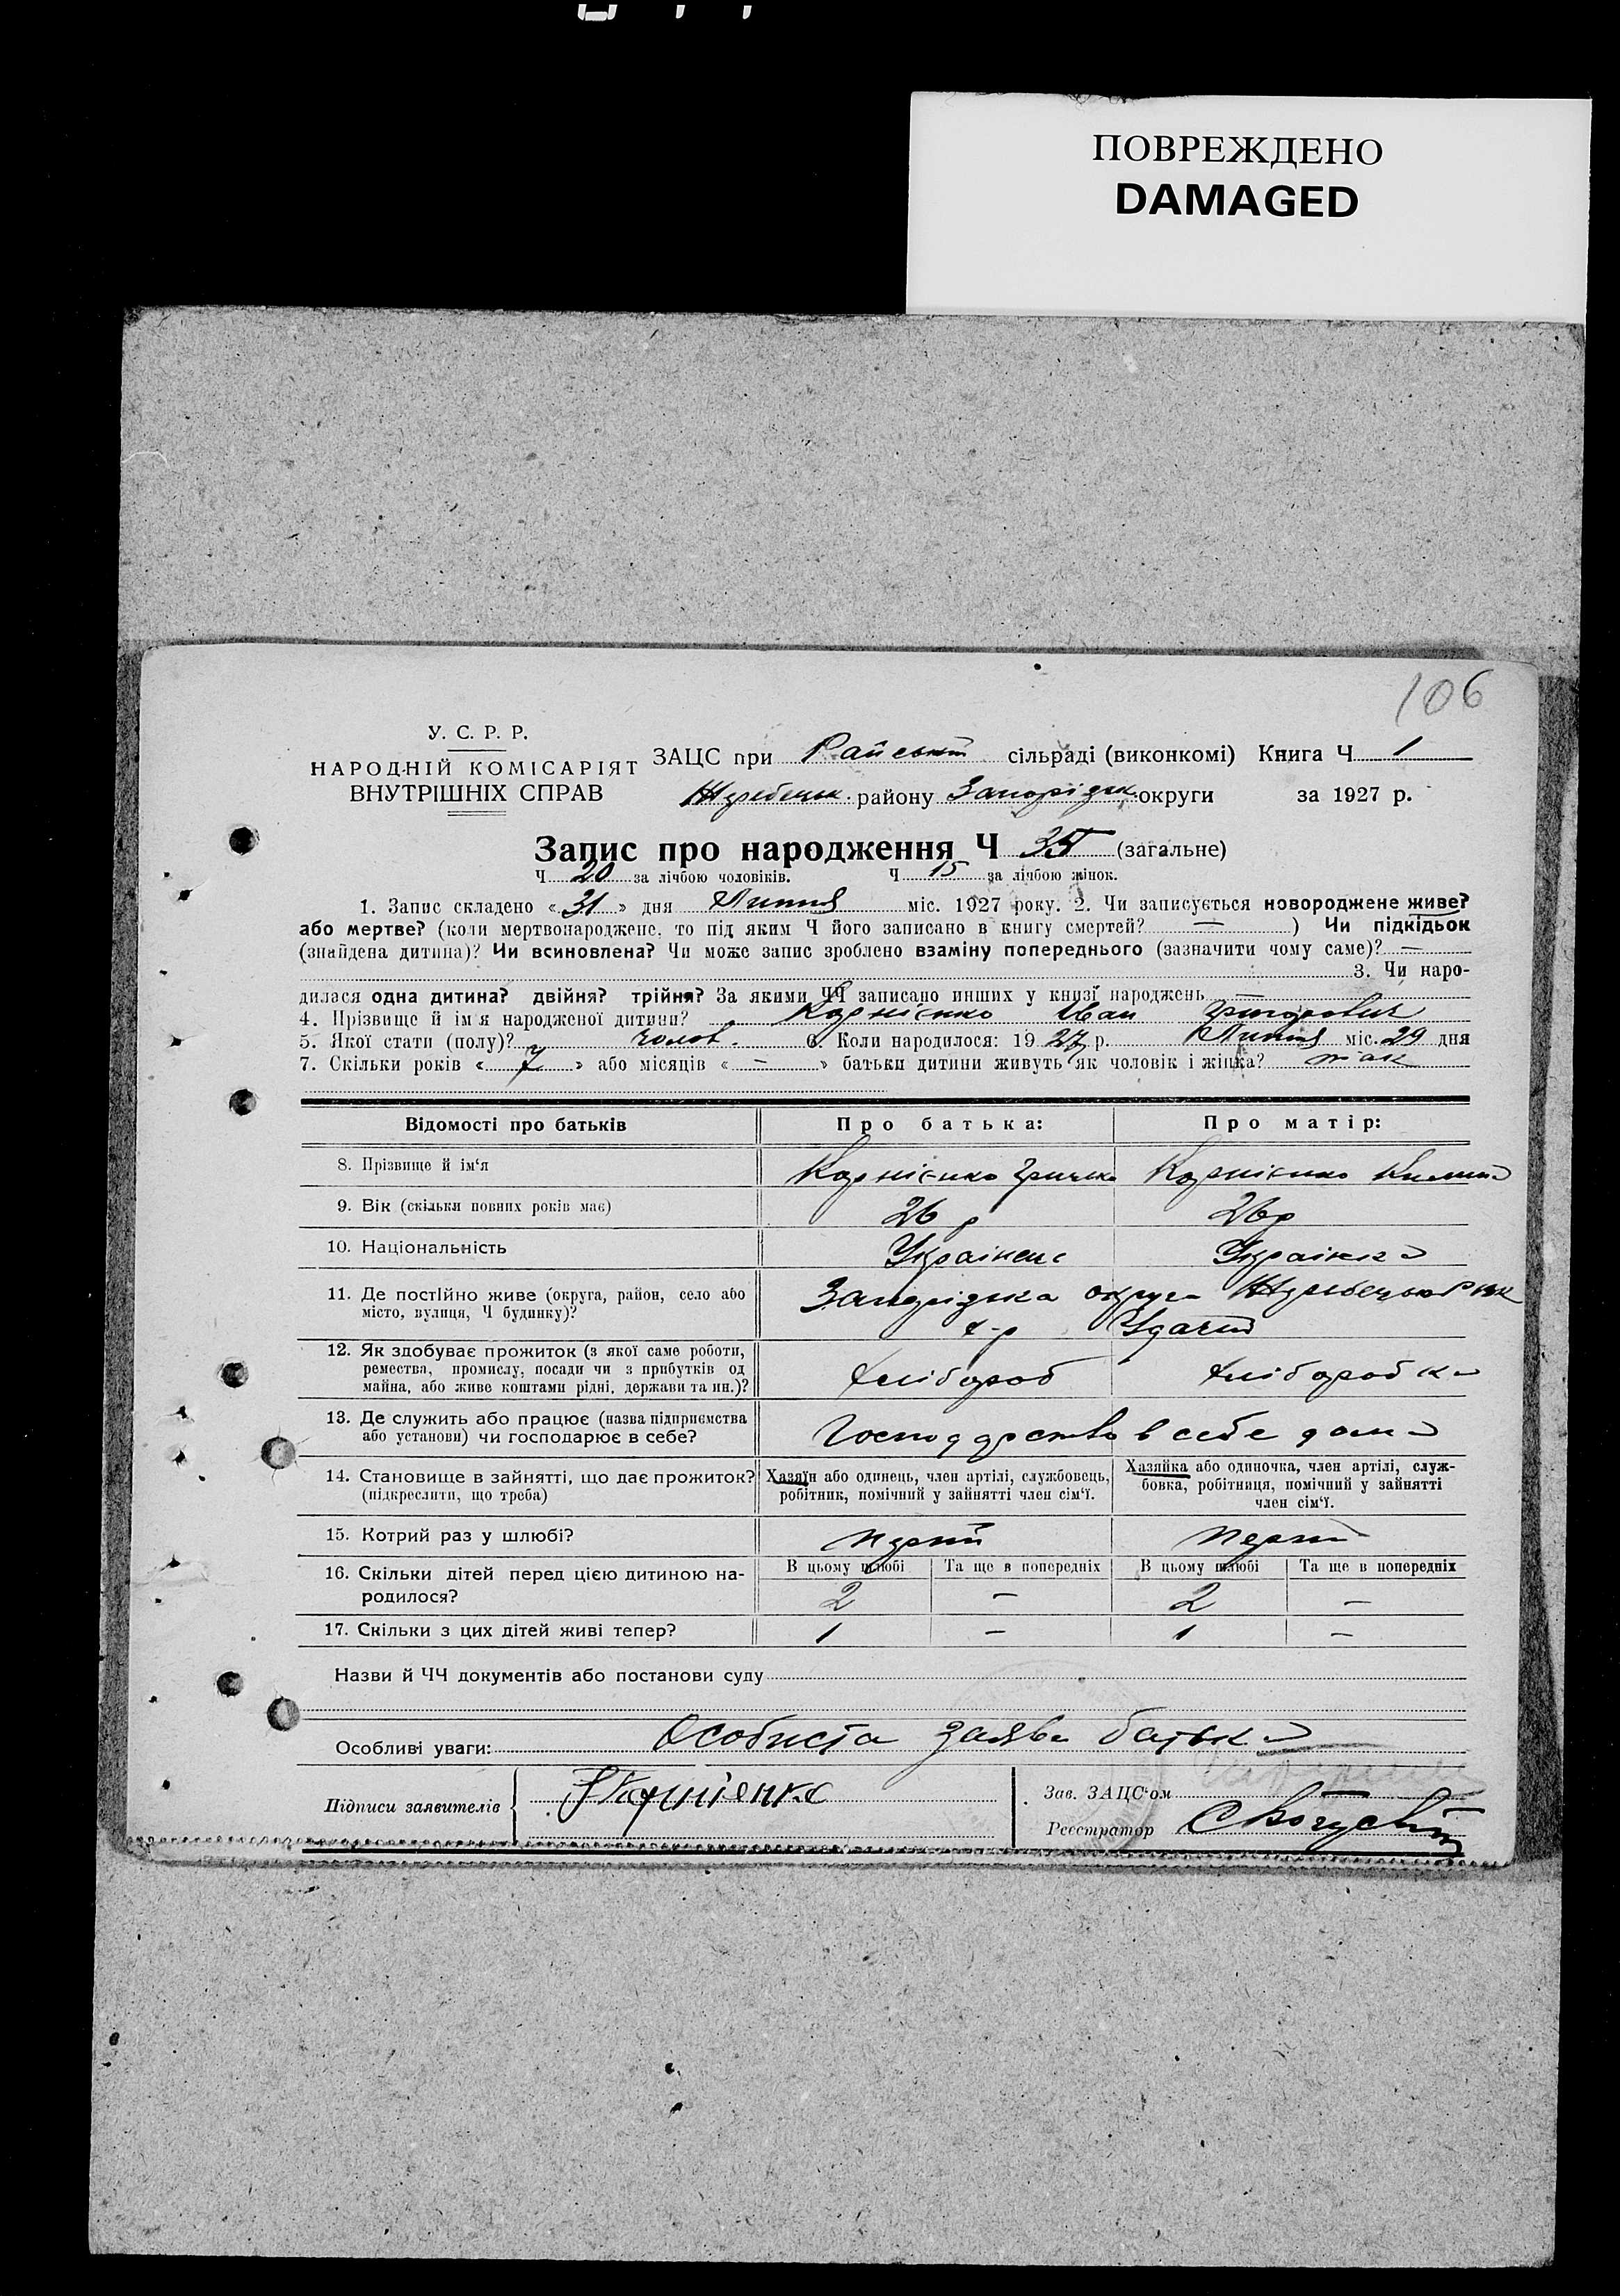 ПОВРЕЖДЕНО
DAMAGED
106
У. С. Р. Р.
НАРОДНІЙ КОМІСАРІЯТ
ВНУТРІШНІХ СПРАВ
ЗАЦС при Райській сільраді (виконкомі) Книга Ч 1
Жеребецьк. району Запоріжк. округи за 1927 р.
Запис про народження Ч 35 (загальне)
Ч 20 за лічбою чоловіків. Ч 15 за лічбою жінок.
1. Запис складено «31» дня Липня міс. 1927 року. 2. Чи записується новороджене живе?
або мертве? (коли мертвонароджене, то під яким Ч його записано в книгу смертей? — ) Чи підкідьок
(знайдена дитина)? Чи всиновлена? Чи може запис зроблено взаміну попереднього (зазначити чому саме)? —
3. Чи наро-
дилася одна дитина? двійня? трійня? За якими ЧЧ записано инших у книзі народжень —
4. Прізвище й ім'я народженої дитини? Корнієнко Іван Григорович
5. Якої стати (полу)? чолов. 6. Коли народилося: 1927 р. Липня міс. 29 дня
7. Скільки років « 7 » або місяців « — » батьки дитини живуть як чоловік і жінка? так
Відомості про батьків
Про батька:
Про матір:
8. Прізвище й ім'я
Корнієнко Корнієнко
9. Вік (скільки повних років має)
26 р 26 р
10. Національність
Українець Українка
11. Де постійно живе (округа, район, село або
місто, вулиця, Ч будинку)?
Запоріжка округа Жеребецький
х-р Удачний
12. Як здобуває прожиток (з якої саме роботи,
ремества, промислу, посади чи з прибутків од
майна, або живе коштами рідні, держави та ин.)?
Хлібороб Хліборобка
13. Де служить або працює (назва підприємства
або установи) чи господарює в себе?
Господарство в себе дома
14. Становище в зайнятті, що дає прожиток?
(підкреслити, що треба)
Хазяїн або одинець, член артілі, службовець,
робітник, помічний у зайнятті член сім'ї.
Хазяйка або одиночка, член артілі, служ-
бовка, робітниця, помічний у зайнятті
член сім'ї.
15. Котрий раз у шлюбі?
перший перший
16. Скільки дітей перед цією дитиною на-
родилося?
В цьому шлюбі Та ще в попередніх В цьому шлюбі Та ще в попередніх
2 — 2 —
17. Скільки з цих дітей живі тепер?
1 — 1 —
Назви й ЧЧ документів або постанови суду
Особливі уваги: Особиста заява батька
Підписи заявителів Корнієнко
Зав. ЗАЦС'ом
Реєстратор